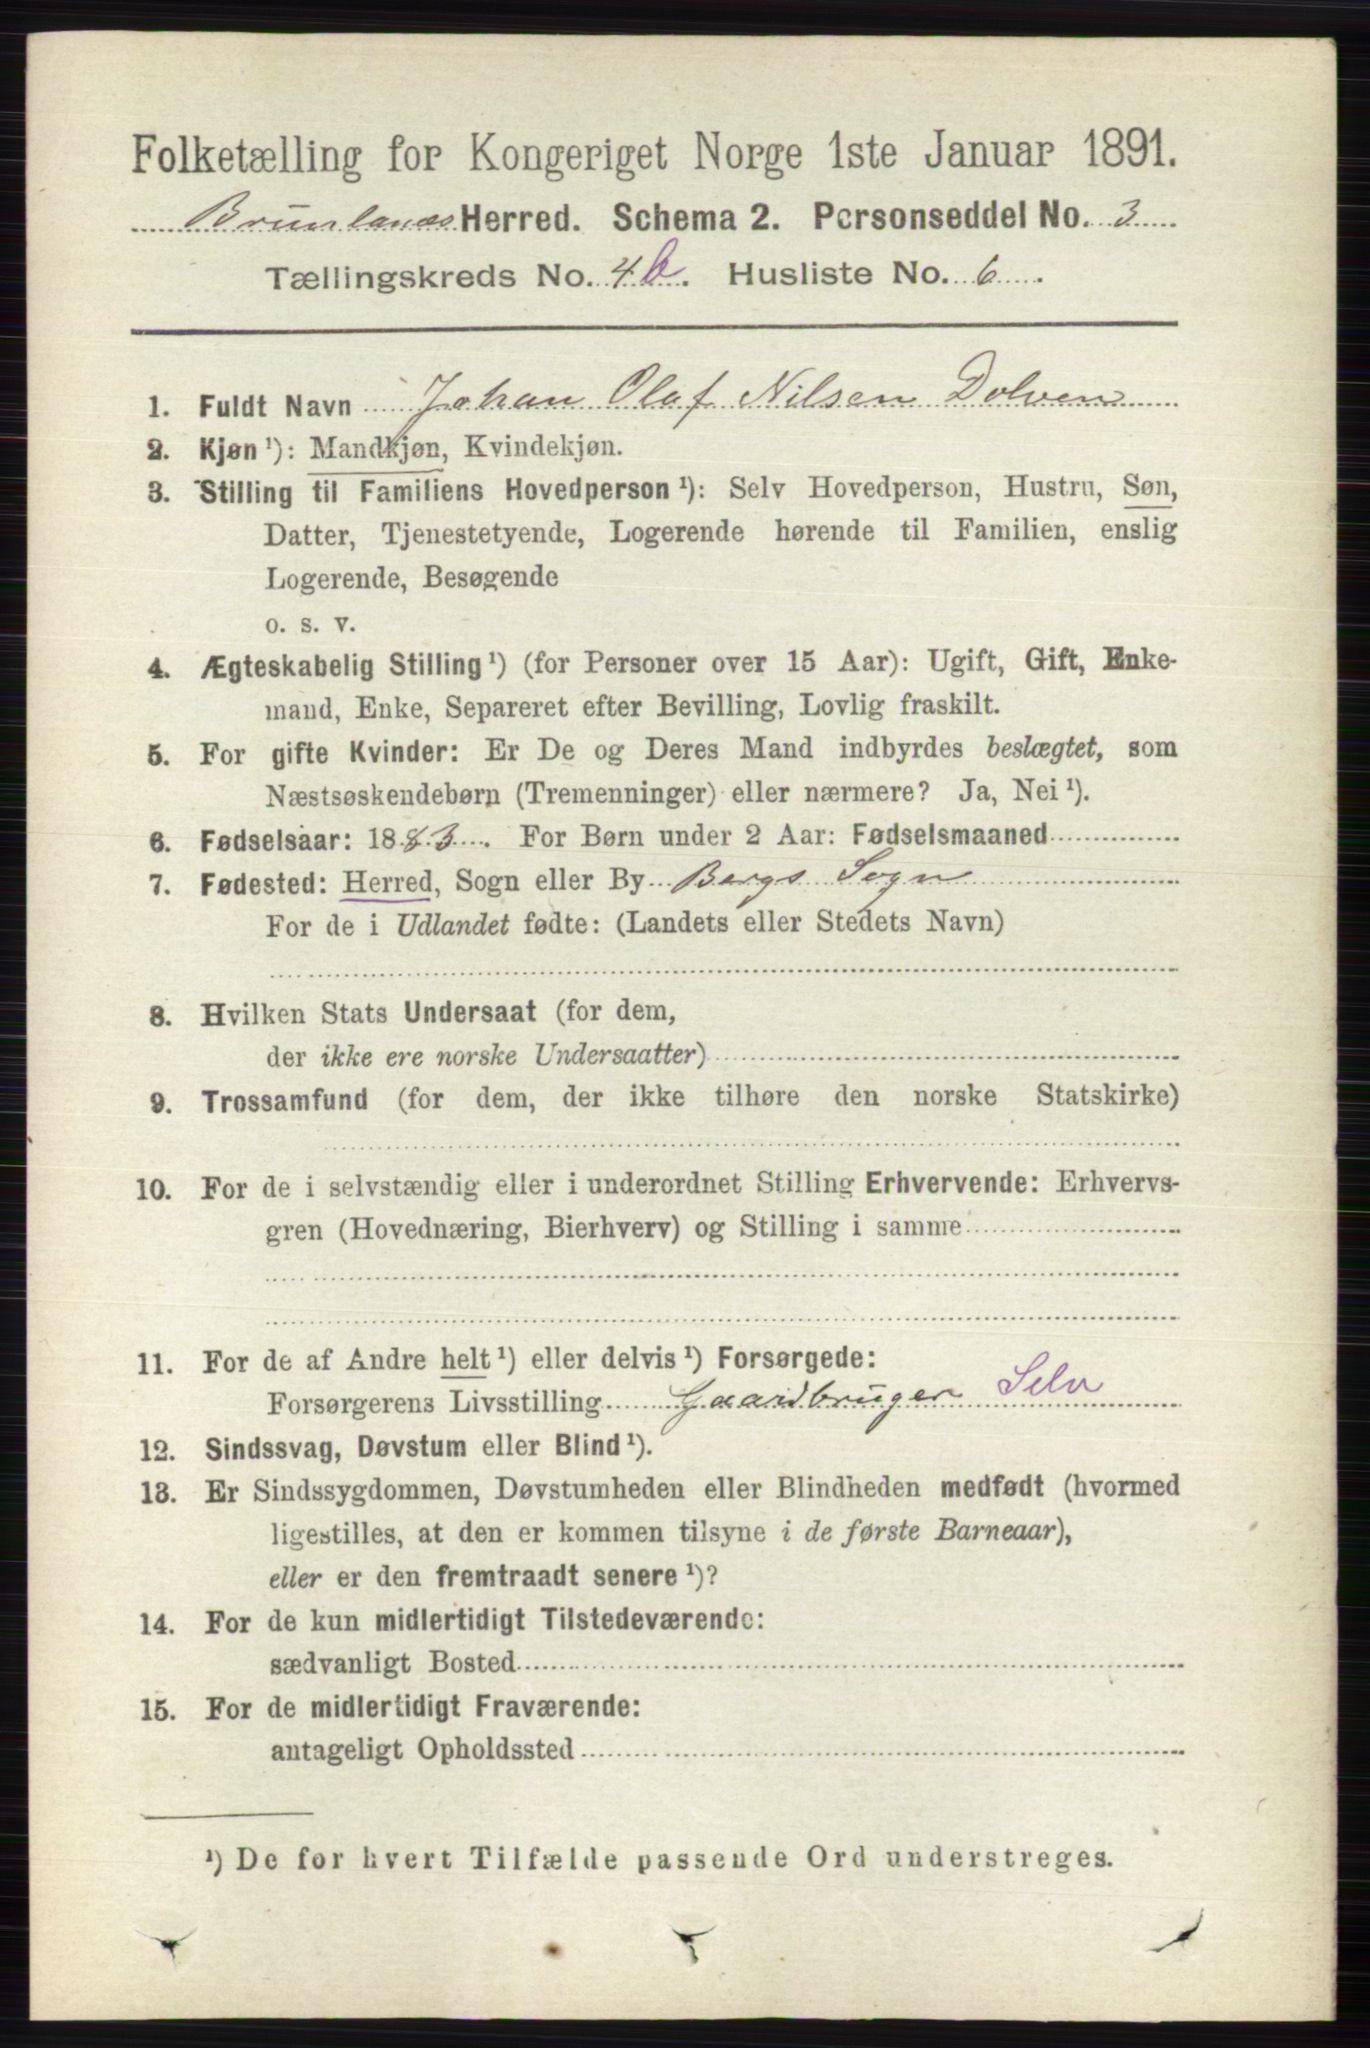 Folketælling for Kongeriget Norge 1ste Januar 1891.
Brunlanæs Herred. Schema 2. Personseddel No. 3
Tællingskreds No. 4b. Husliste No. 6.
1. Fuldt Navn Johan Olaf Nilsen Dolven
2. Kjøn ¹): Mandkjøn, Kvindekjøn.
3. Stilling til Familiens Hovedperson ¹): Selv Hovedperson, Hustru, Søn,
Datter, Tjenestetyende, Logerende hørende til Familien, enslig
Logerende, Besøgende
o. s. v.
4. Ægteskabelig Stilling ¹) (for Personer over 15 Aar): Ugift, Gift, Enke-
mand, Enke, Separeret efter Bevilling, Lovlig fraskilt.
5. For gifte Kvinder: Er De og Deres Mand indbyrdes beslægtet, som
Næstsøskendebørn (Tremenninger) eller nærmere? Ja, Nei ¹).
6. Fødselsaar: 1883. For Børn under 2 Aar: Fødselsmaaned
7. Fødested: Herred, Sogn eller By Bergs Sogn
For de i Udlandet fødte: (Landets eller Stedets Navn)
8. Hvilken Stats Undersaat (for dem,
der ikke ere norske Undersaatter)
9. Trossamfund (for dem, der ikke tilhøre den norske Statskirke)
10. For de i selvstændig eller i underordnet Stilling Erhvervende: Erhvervs-
gren (Hovednæring, Bierhverv) og Stilling i samme
11. For de af Andre helt ¹) eller delvis ¹) Forsørgede:
Forsørgerens Livsstilling Gaardbruger Selv
12. Sindssvag, Døvstum eller Blind ¹).
13. Er Sindssygdommen, Døvstumheden eller Blindheden medfødt (hvormed
ligestilles, at den er kommen tilsyne i de første Barneaar),
eller er den fremtraadt senere ¹)?
14. For de kun midlertidigt Tilstedeværende:
sædvanligt Bosted
15. For de midlertidigt Fraværende:
antageligt Opholdssted
¹) De for hvert Tilfælde passende Ord understreges.